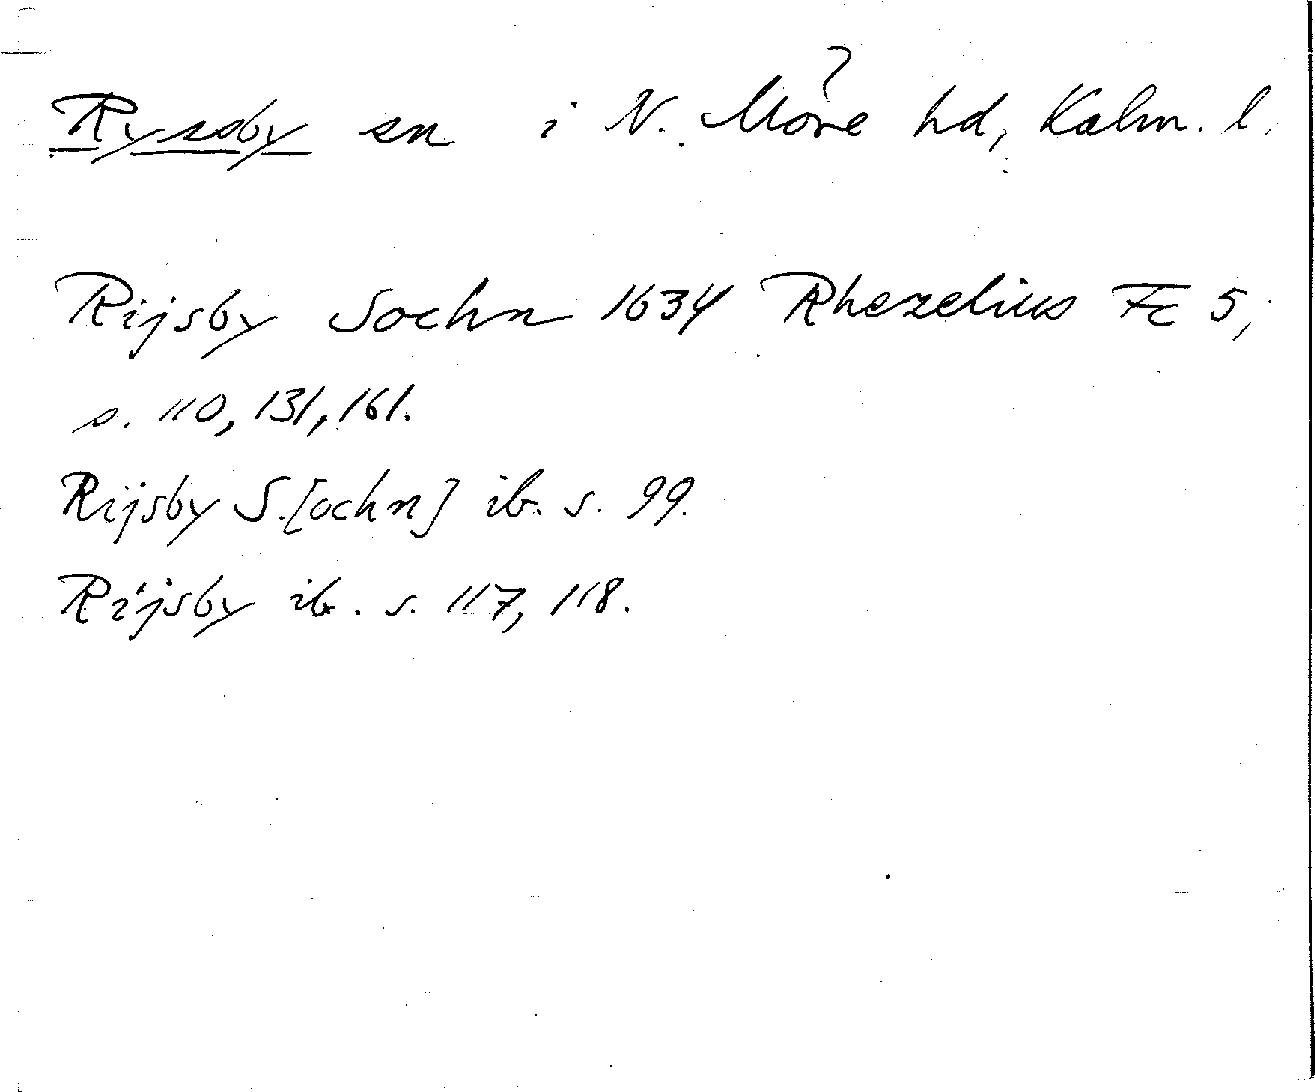 Ryssby sn i N. Möre hd, Kalm. l.
Rijsby Sochn 1634 Rhezelius Fc 5;
s. 110, 131, 161.
Rijsby S.[ochn] ib. s. 99.
Rijsby ib. s. 117, 118.